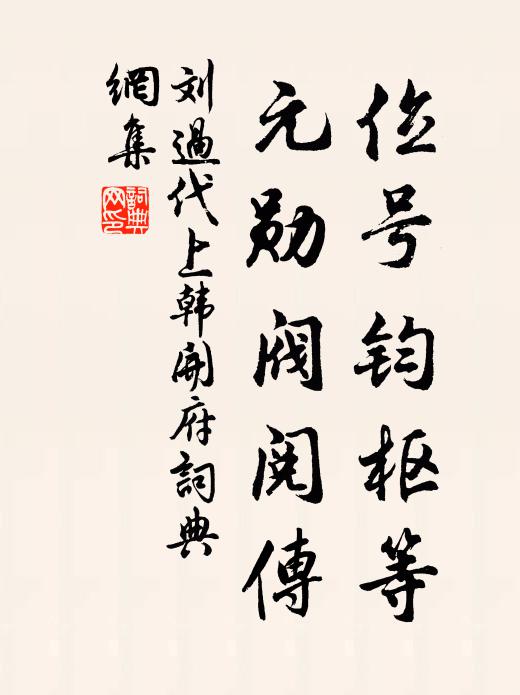 位号钧枢等
元勋阀阅傳
刘過代上韩開府詞典
網集
詞典
网印